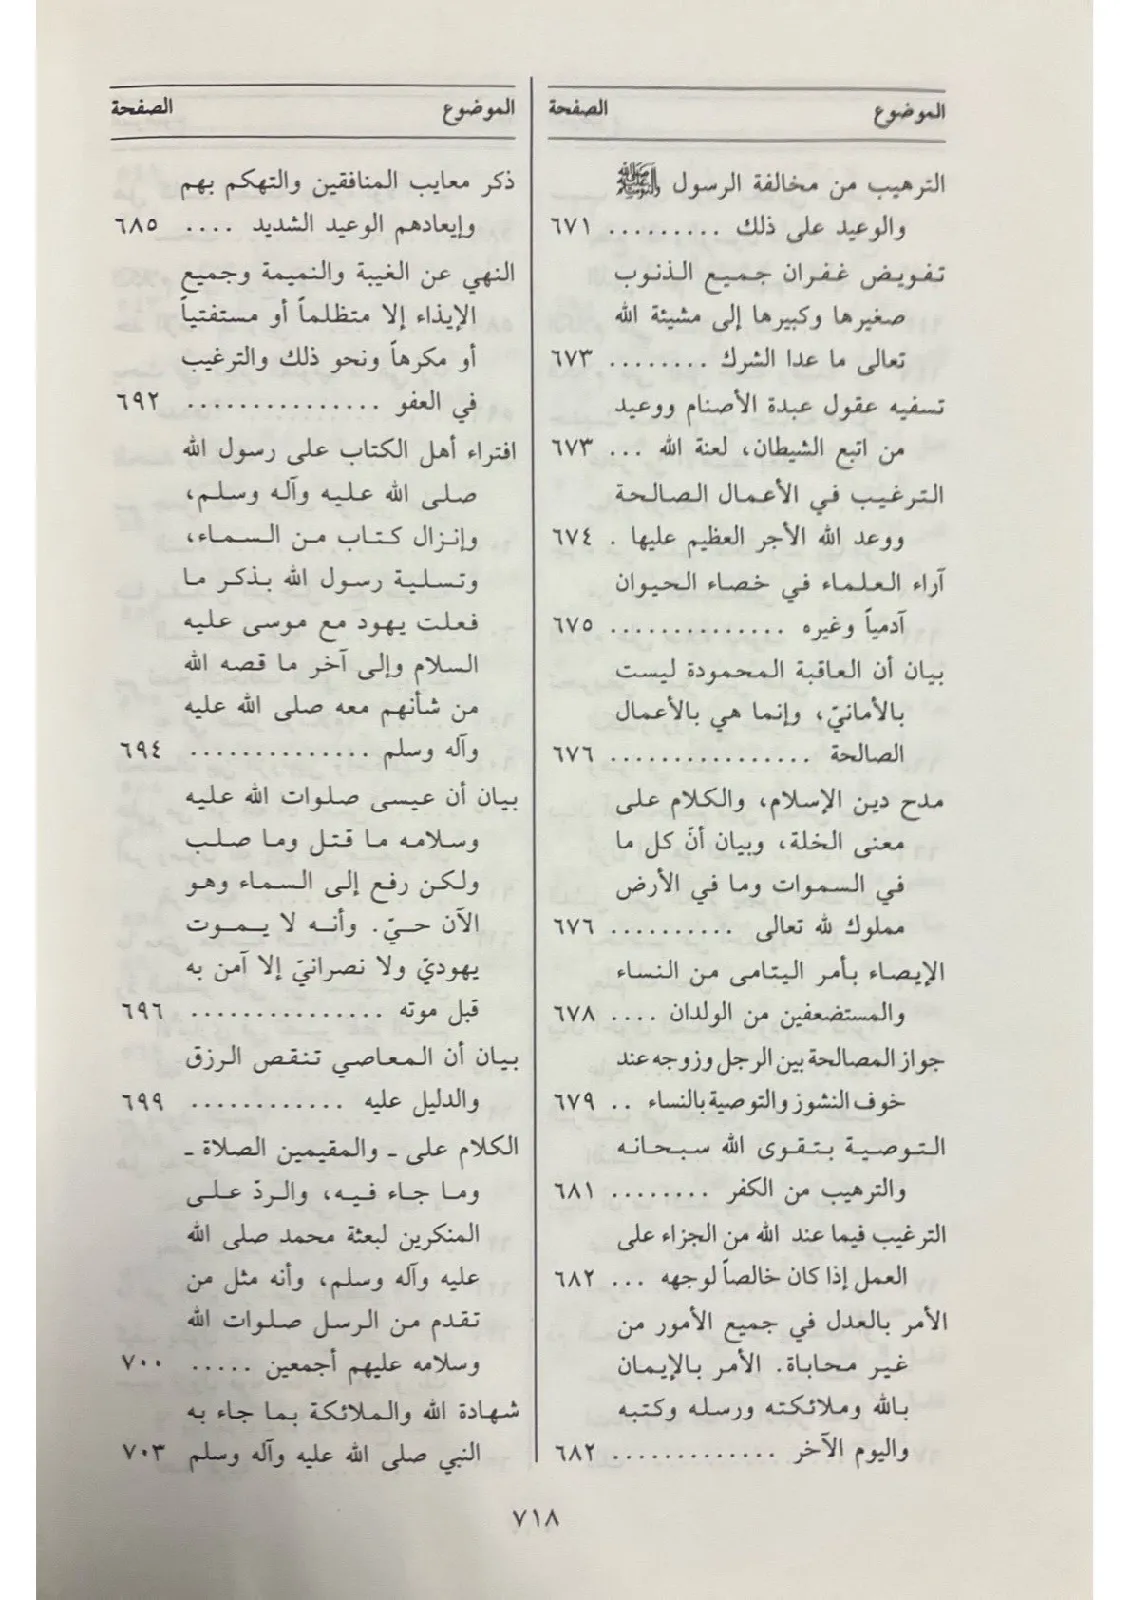 الموضوع الصفحة
الترهيب من مخالفة الرسول ﷺ
والوعيد على ذلك ......... ٦٧١
تفويض غفران جميع الذنوب
صغيرها وكبيرها إلى مشيئة الله
تعالى ما عدا الشرك ........ ٦٧٣
تسفيه عقول عبدة الأصنام ووعيد
من اتبع الشيطان، لعنة الله ... ٦٧٣
الترغيب في الأعمال الصالحة
ووعد الله الأجر العظيم عليها . ٦٧٤
آراء العلماء في خصاء الحيوان
آدمياً وغيره .............. ٦٧٥
بيان أن العاقبة المحمودة ليست
بالأمانيّ، وإنما هي بالأعمال
الصالحة ................ ٦٧٦
مدح دين الإسلام، والكلام على
معنى الخلة، وبيان أنّ كل ما
في السموات وما في الأرض
مملوك لله تعالى .......... ٦٧٦
الإيصاء بأمر اليتامى من النساء
والمستضعفين من الولدان .... ٦٧٨
جواز المصالحة بين الرجل وزوجه عند
خوف النشوز والتوصية بالنساء .. ٦٧٩
التوصية بتقوى الله سبحانه
والترهيب من الكفر ........ ٦٨١
الترغيب فيما عند الله من الجزاء على
العمل إذا كان خالصاً لوجهه ... ٦٨٢
الأمر بالعدل في جميع الأمور من
غير محاباة. الأمر بالإيمان
بالله وملائكته ورسله وكتبه
واليوم الآخر ............. ٦٨٢
الموضوع الصفحة
ذكر معايب المنافقين والتهكم بهم
وإيعادهم الوعيد الشديد .... ٦٨٥
النهي عن الغيبة والنميمة وجميع
الإيذاء إلا متظلماً أو مستفتياً
أو مكرهاً ونحو ذلك والترغيب
في العفو ............... ٦٩٢
افتراء أهل الكتاب على رسول الله
صلى الله عليه وآله وسلم،
وإنزال كتاب من السماء،
وتسلية رسول الله بذكر ما
فعلت يهود مع موسى عليه
السلام وإلى آخر ما قصه الله
من شأنهم معه صلى الله عليه
وآله وسلم .............. ٦٩٤
بيان أن عيسى صلوات الله عليه
وسلامه ما قتل وما صلب
ولكن رفع إلى السماء وهو
الآن حيّ. وأنه لا يموت
يهوديّ ولا نصرانيّ إلا آمن به
قبل موته ............... ٦٩٦
بيان أن المعاصي تنقص الرزق
والدليل عليه ............ ٦٩٩
الكلام على ـ والمقيمين الصلاة ـ
وما جاء فيه، والردّ على
المنكرين لبعثة محمد صلى الله
عليه وآله وسلم، وأنه مثل من
تقدم من الرسل صلوات الله
وسلامه عليهم أجمعين ..... ٧٠٠
شهادة الله والملائكة بما جاء به
النبي صلى الله عليه وآله وسلم ٧٠٣
٧١٨